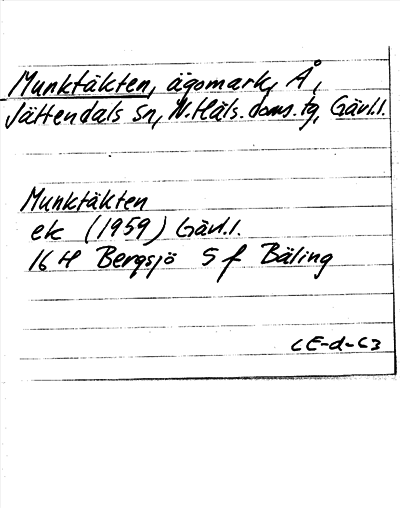 Munktäkten, ägomark, Å,
Jättendals sn, N. Häls. doms. tg, Gävl.l.
Munktäkten
ek (1959) Gävl.l.
16 H Bergsjö 5 f Bäling